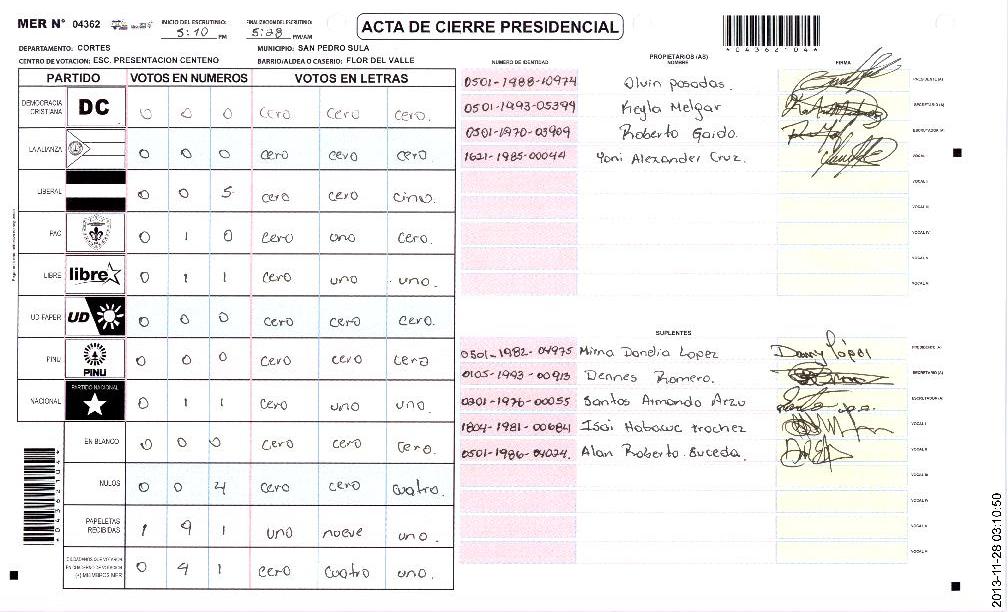 MER N° 04362
INICIO DEL ESCRUTINIO: 5:10 PM
FINALIZACION DEL ESCRUTINIO: 5:28 PM/AM
ACTA DE CIERRE PRESIDENCIAL
*04362104*
DEPARTAMENTO: CORTES
MUNICIPIO: SAN PEDRO SULA
CENTRO DE VOTACION: ESC. PRESENTACION CENTENO
BARRIO/ALDEA O CASERIO: FLOR DEL VALLE
PARTIDO VOTOS EN NUMEROS VOTOS EN LETRAS
DEMOCRACIA CRISTIANA DC 0 0 0 cero cero cero.
LA ALIANZA 0 0 0 cero cero cero.
LIBERAL 0 0 5 cero cero cinco.
PAC 0 1 0 cero uno cero.
LIBRE libre 0 1 1 cero uno uno.
UD FAPER UD 0 0 0 cero cero cero.
PINU PINU 0 0 0 cero cero cero
NACIONAL PARTIDO NACIONAL 0 1 1 cero uno uno.
EN BLANCO 0 0 0 cero cero cero.
NULOS 0 0 4 cero cero cuatro.
PAPELETAS RECIBIDAS 1 9 1 uno nueve uno.
CIUDADANOS QUE VOTARON EN CUADERNO DE VOTACION (+) MIEMBROS MER 0 4 1 cero cuatro uno.
NUMERO DE IDENTIDAD PROPIETARIOS (AS) NOMBRE FIRMA
0501-1988-10974 Olvin Posadas. PRESIDENTE (A)
0501-1993-05399 Keyla Melgar SECRETARIO (A)
0501-1970-03909 Roberto Gaido. ESCRUTADOR (A)
1621-1985-00044 Yoni Alexander Cruz. VOCAL I
VOCAL II
VOCAL III
VOCAL IV
VOCAL V
SUPLENTES
0501-1982-04975 Mirna Donelia Lopez Danny López PRESIDENTE (A)
0105-1993-00913 Dennes Romero. SECRETARIO (A)
0301-1976-00055 Santos Armando Arzu ESCRUTADOR (A)
1804-1981-00684 Isai trochez VOCAL I
0501-1986-04024. Alan Roberto Buceda. VOCAL II
VOCAL III
VOCAL IV
VOCAL V
2013-11-28 03:10:50